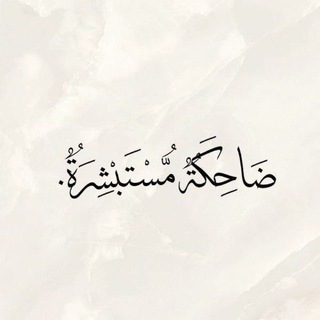 ضَاحِكَةٌ مُّسْتَبْشِرَةٌ.